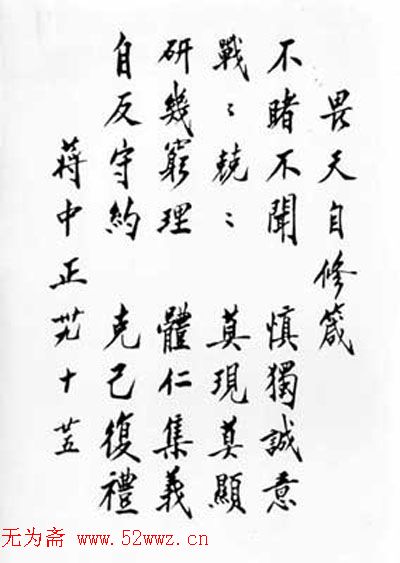 畏天自修箴
不睹不聞 慎獨誠意
戰〻兢〻 莫現莫顯
研幾窮理 體仁集義
自反守約 克己復禮
蔣中正 卅九 十 廿五
无为斋 www.52wwz.cn